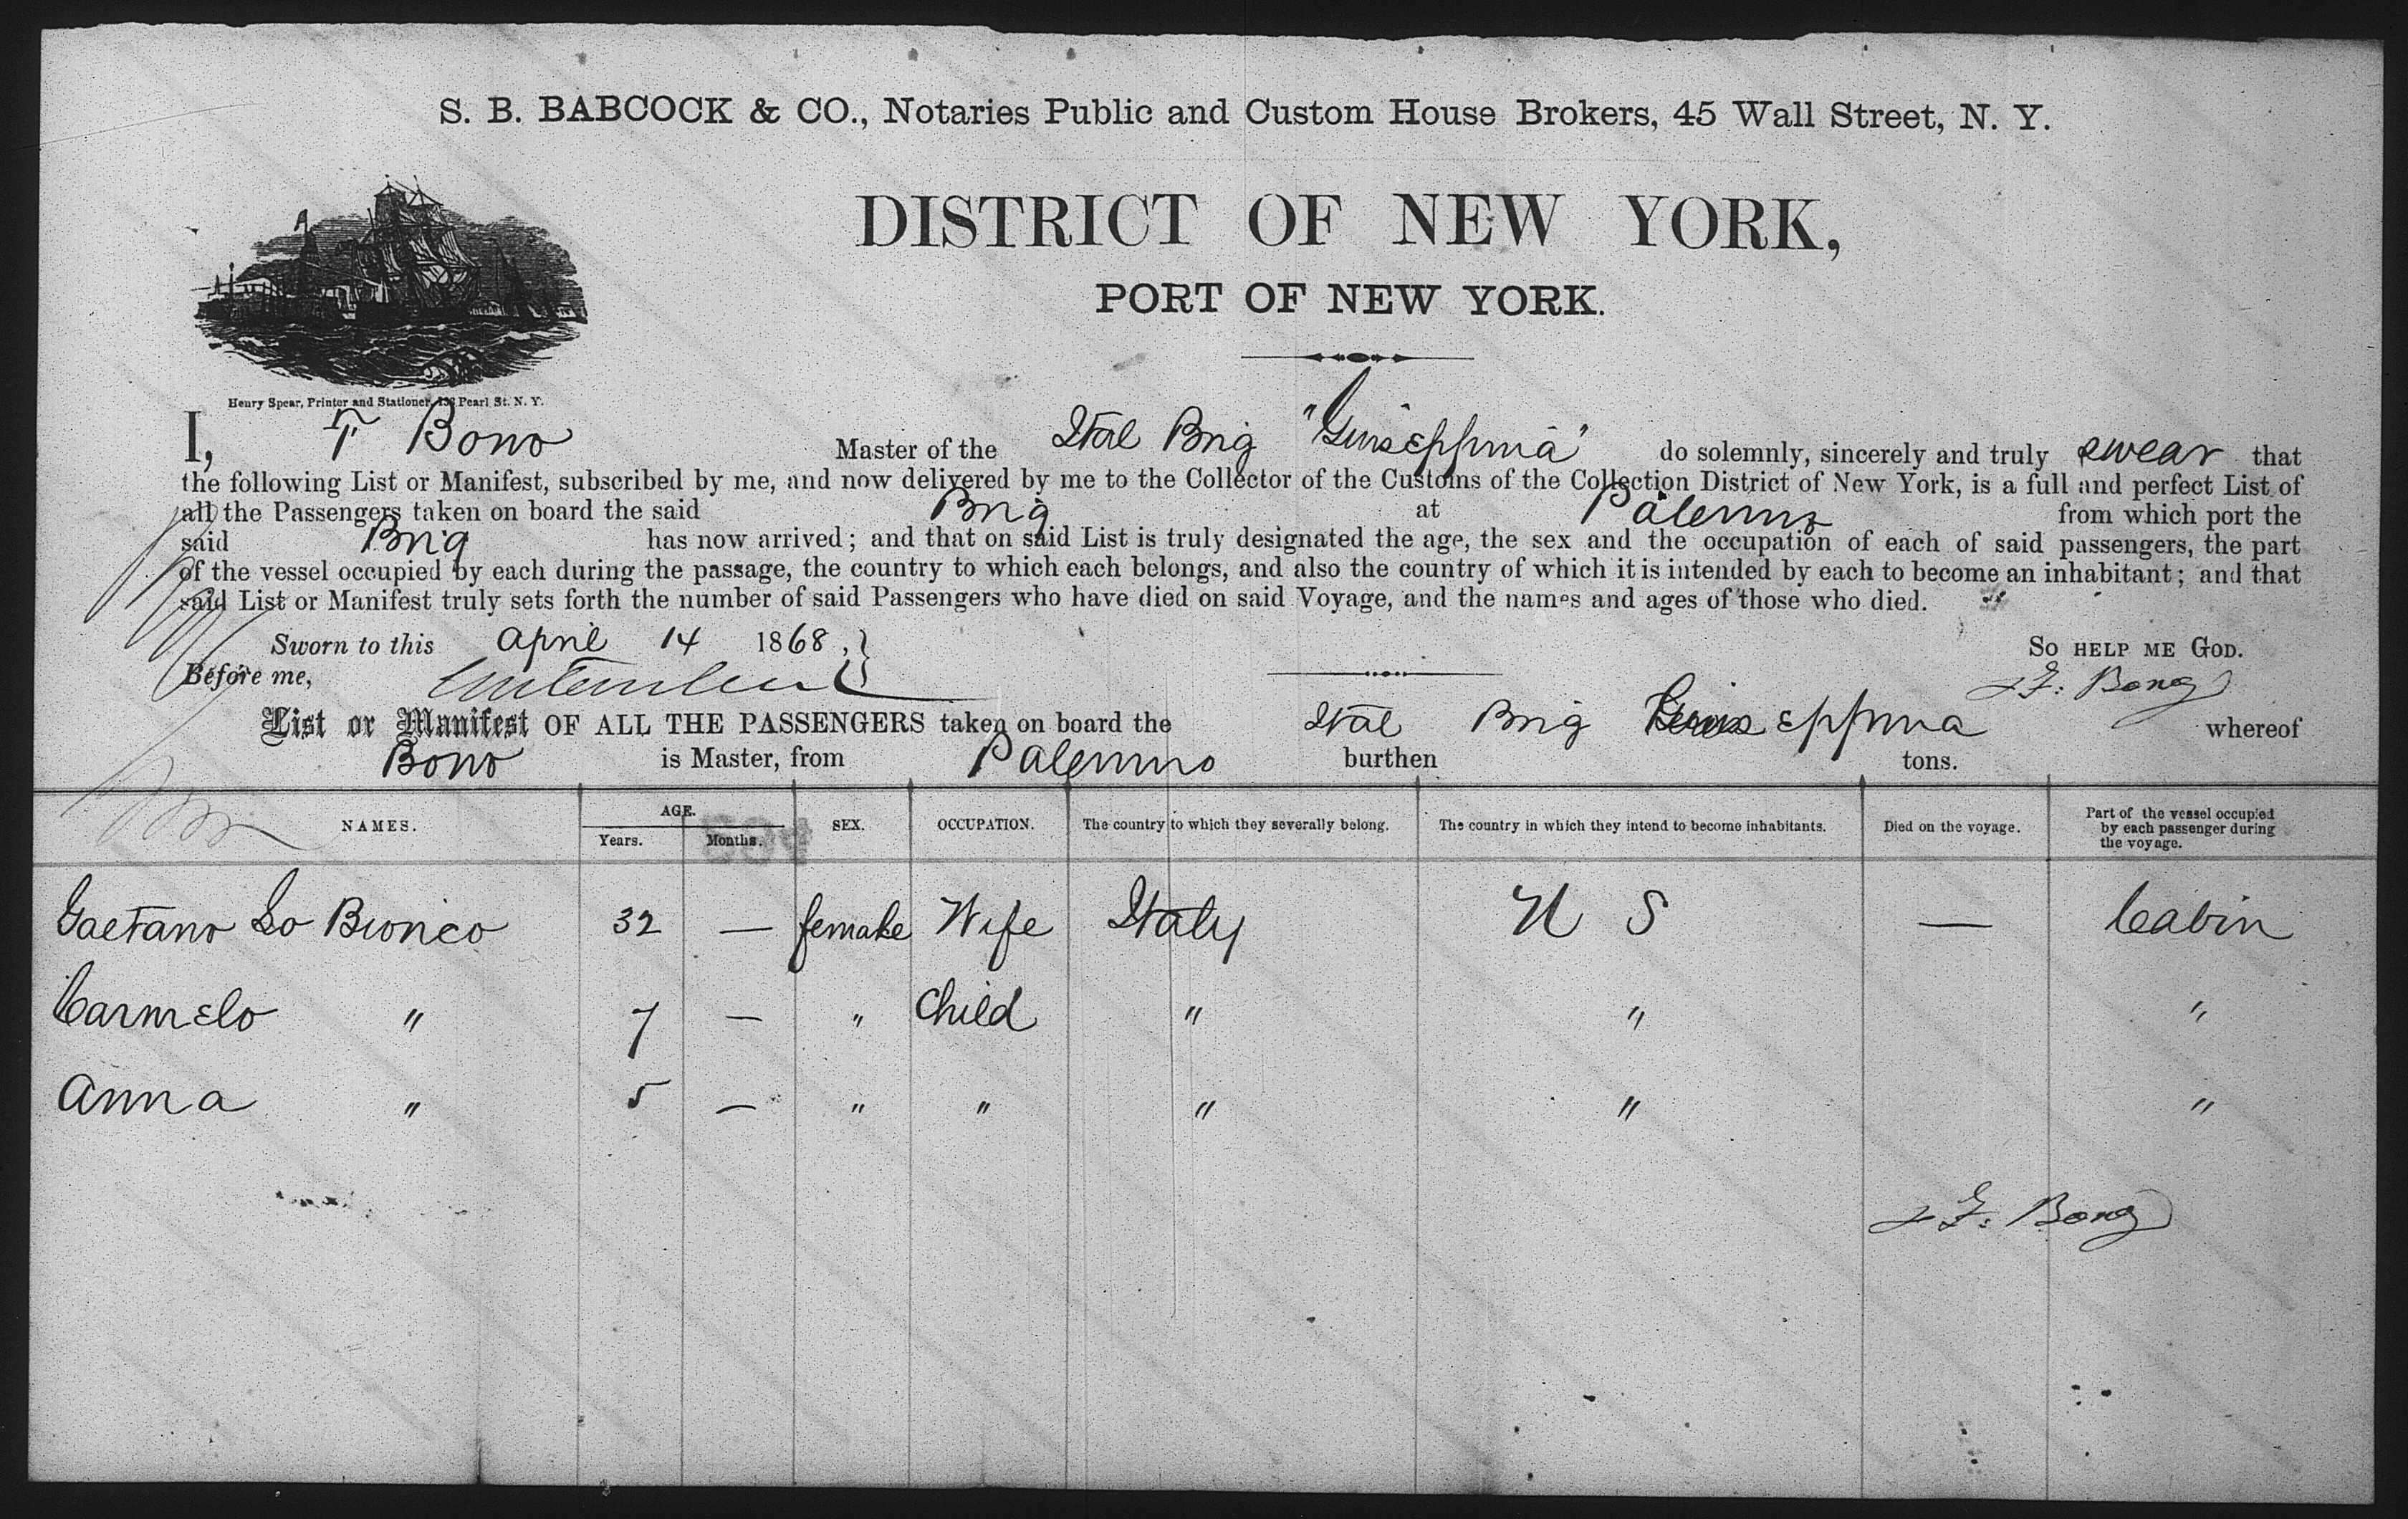 S. B. BABCOCK & CO., Notaries Public and Custom House Brokers, 45 Wall Street, N. Y.
DISTRICT OF NEW YORK,
PORT OF NEW YORK.
Henry Spear, Printer and Stationer, 136 Pearl St. N. Y.
I, F Bono Master of the Ital Brig "Guiseppina" do solemnly, sincerely and truly swear that
the following List or Manifest, subscribed by me, and now delivered by me to the Collector of the Customs of the Collection District of New York, is a full and perfect List of
all the Passengers taken on board the said Brig at Palermo from which port the
said Brig has now arrived; and that on said List is truly designated the age, the sex and the occupation of each of said passengers, the part
of the vessel occupied by each during the passage, the country to which each belongs, and also the country of which it is intended by each to become an inhabitant; and that
said List or Manifest truly sets forth the number of said Passengers who have died on said Voyage, and the names and ages of those who died.
Sworn to this April 14 1868, So HELP ME GOD.
Before me, F. Bono
List or Manifest OF ALL THE PASSENGERS taken on board the Ital Brig Guiseppina whereof
Bono is Master, from Palermo burthen tons.
NAMES. AGE. Years. Months. SEX. OCCUPATION. The country to which they severally belong. The country in which they intend to become inhabitants. Died on the voyage. Part of the vessel occupied by each passenger during the voyage.
Gaetano Lo Bionco 32 — female Wife Italy U S — Cabin
Carmelo " 7 — " Child " " "
Anna " 5 — " " " " "
F. Bono